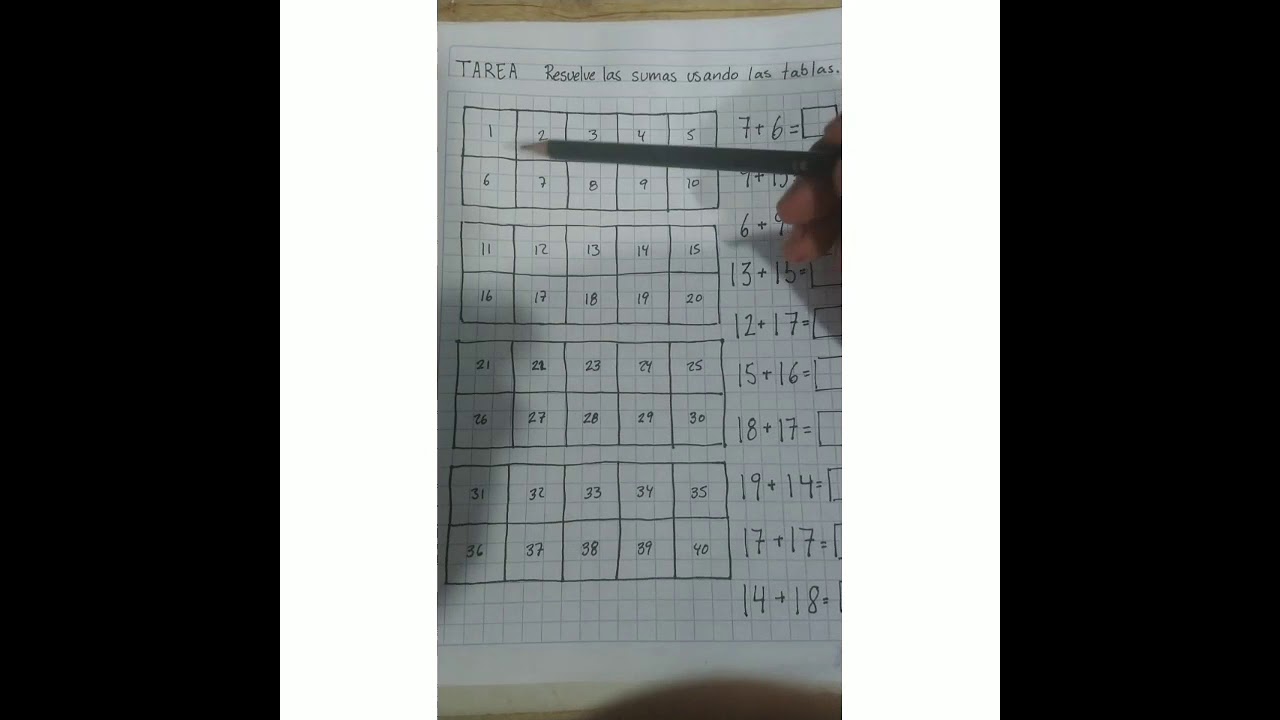 TAREA Resuelve las sumas usando las tablas.
1 2 3 4 5
6 7 8 9 10
11 12 13 14 15
16 17 18 19 20
21 22 23 24 25
26 27 28 29 30
31 32 33 34 35
36 37 38 39 40
7+6=
6+9
13+15=
12+17=
15+16=
18+17=
19+14=
17+17=
14+18=